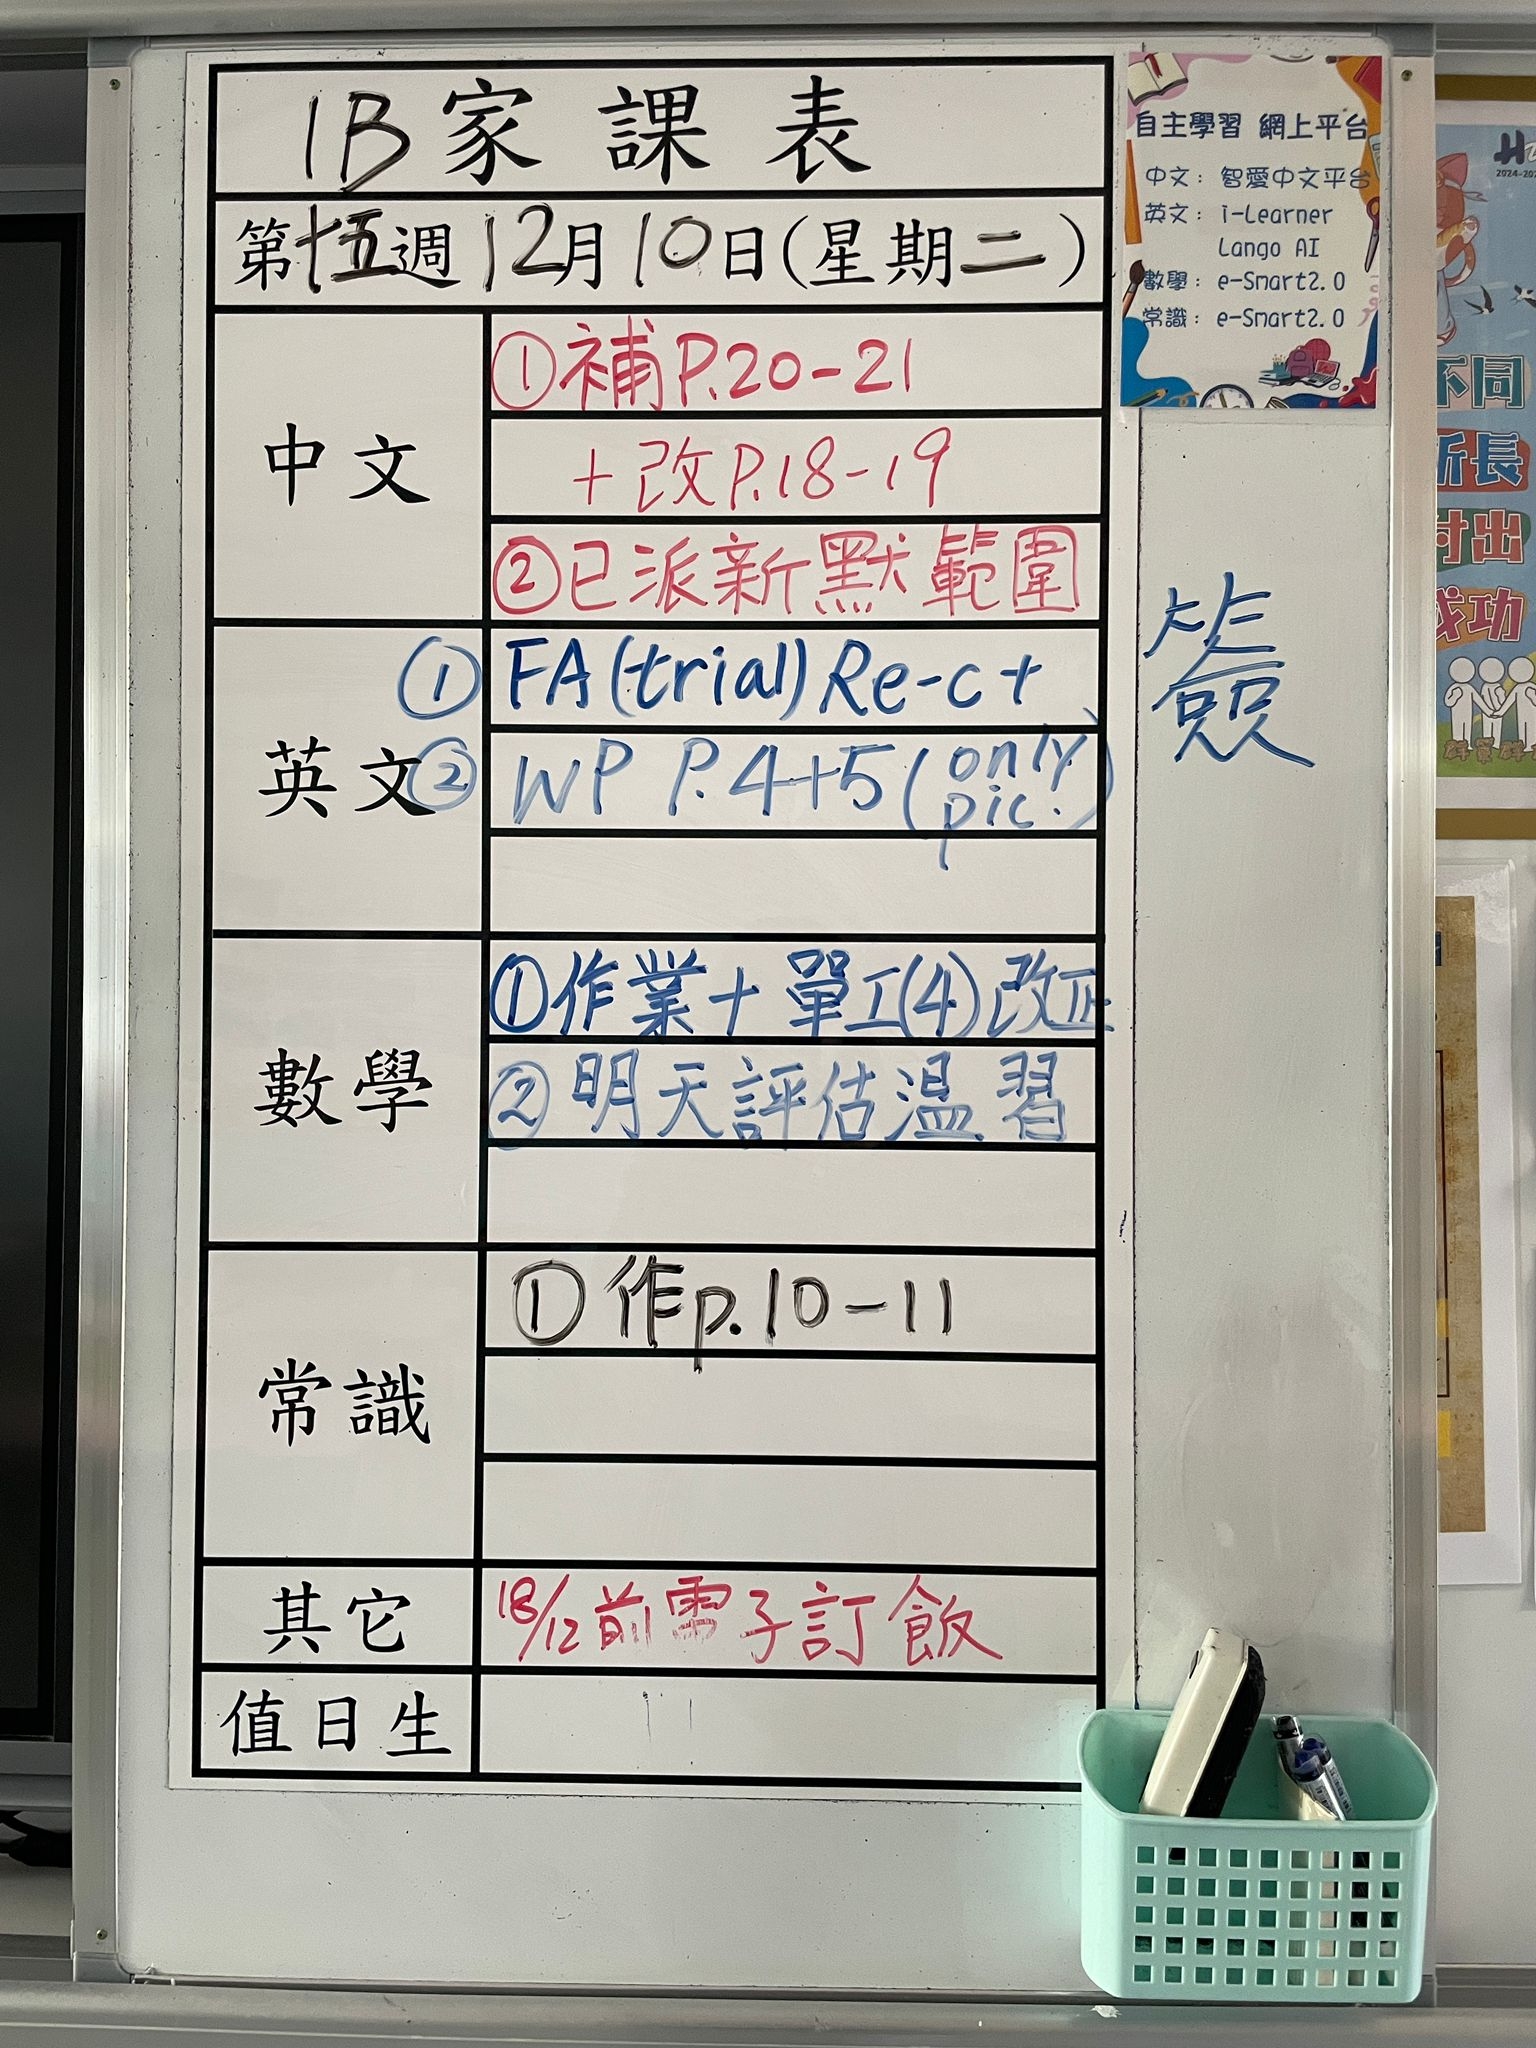 1B家課表
第十五週12月10日(星期二)
中文
①補P.20-21
+改P.18-19
②已派新默範圍
英文
① FA(trial) Re-c+
② WP P.4+5(only pic.)
數學
①作業+單工(4)改正
②明天評估温習
常識
①作p.10-11
其它
18/12前電子訂飯
值日生
簽
自主學習 網上平台
中文：智愛中文平台
英文：i-Learner
Lango AI
數學：e-Smart2.0
常識：e-Smart2.0
2024-20
不同
所長
付出
成功